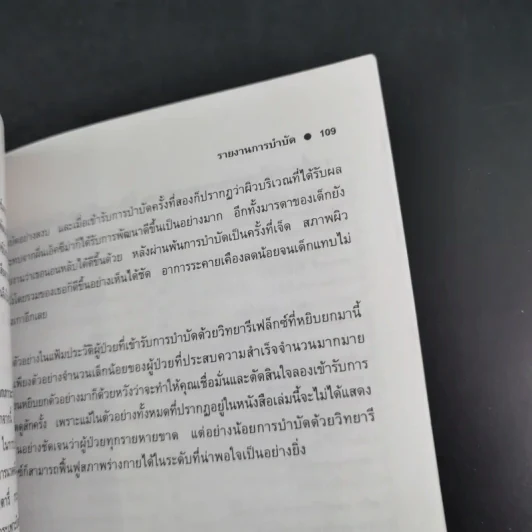 รายงานการบำบัด ● 109
และเมื่อเข้ารับการบำบัดครั้งที่สองก็ปรากฏว่าผิวบริเวณที่ได้รับผล
ได้รับการพัฒนาดีขึ้นเป็นอย่างมาก อีกทั้งมารดาของเด็กยัง
นอนหลับได้ดีขึ้นด้วย หลังผ่านพ้นการบำบัดเป็นครั้งที่เจ็ด สภาพผิว
โดยรวมของเธอก็ดีขึ้นอย่างเห็นได้ชัด อาการระคายเคืองลดน้อยจนเด็กแทบไม่
เกาอีกเลย
ตัวอย่างในแฟ้มประวัติผู้ป่วยที่เข้ารับการบำบัดด้วยวิทยารีเฟล็กซ์ที่หยิบยกมานี้
เพียงตัวอย่างจำนวนเล็กน้อยของผู้ป่วยที่ประสบความสำเร็จจำนวนมากมาย
หยิบยกตัวอย่างมาก็ด้วยหวังว่าจะทำให้คุณเชื่อมั่นและตัดสินใจลองเข้ารับการ
ดูสักครั้ง เพราะแม้ในตัวอย่างทั้งหมดที่ปรากฏอยู่ในหนังสือเล่มนี้จะไม่ได้แสดง
อย่างชัดเจนว่าผู้ป่วยทุกรายหายขาด แต่อย่างน้อยการบำบัดด้วยวิทยารี
ก็สามารถฟื้นฟูสภาพร่างกายได้ในระดับที่น่าพอใจเป็นอย่างยิ่ง